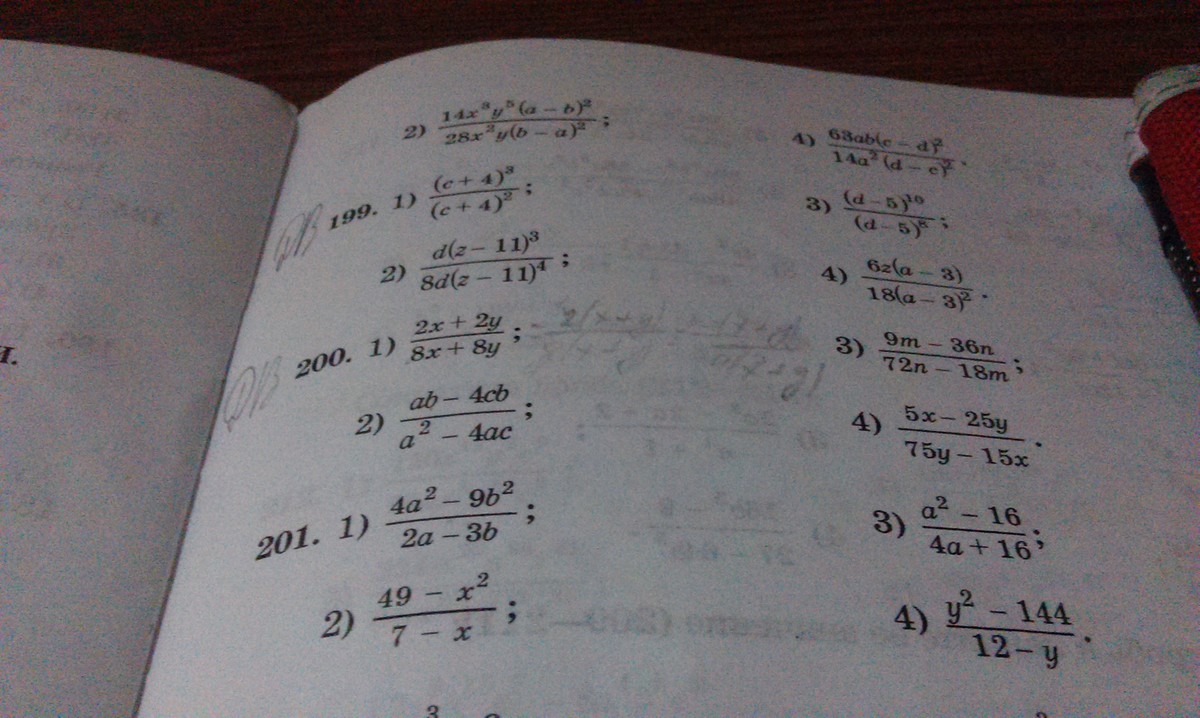 2) 14x³y⁵(a – b)² / 28x²y(b – a)² ;
4) 63ab(c – d)² / 14a²(d – c)² .
199. 1) (c + 4)³ / (c + 4)² ;
3) (d – 5)¹⁰ / (d – 5)⁸ ;
2) d(z – 11)³ / 8d(z – 11)⁴ ;
4) 6z(a – 3) / 18(a – 3)² .
200. 1) 2x + 2y / 8x + 8y ;
3) 9m – 36n / 72n – 18m ;
2) ab – 4cb / a² – 4ac ;
4) 5x – 25y / 75y – 15x .
201. 1) 4a² – 9b² / 2a – 3b ;
3) a² – 16 / 4a + 16 ;
2) 49 – x² / 7 – x ;
4) y² – 144 / 12 – y .